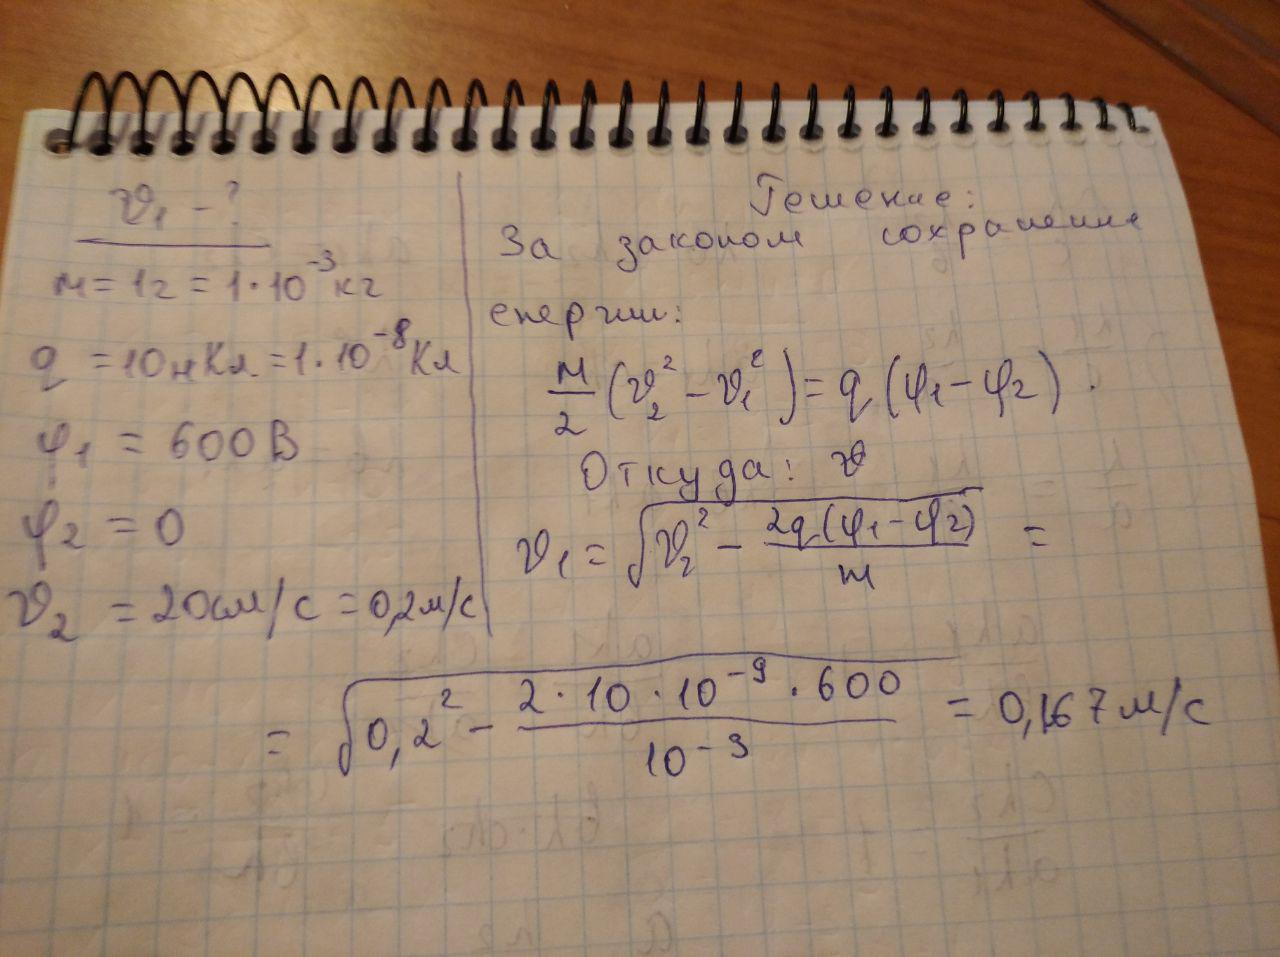 υ₁ - ?
m = 1г = 1·10⁻³кг
q = 10нКл = 1·10⁻⁸Кл
φ₁ = 600В
φ₂ = 0
υ₂ = 20см/с = 0,2м/с
Решение:
За законом сохранение
енергии:
m/2 (υ₂² - υ₁²) = q (φ₁ - φ₂).
Откуда: υ
υ₁ = √(υ₂² - 2q(φ₁ - φ₂)/m) =
= √(0,2² - 2·10·10⁻⁹·600/10⁻³) = 0,167м/с